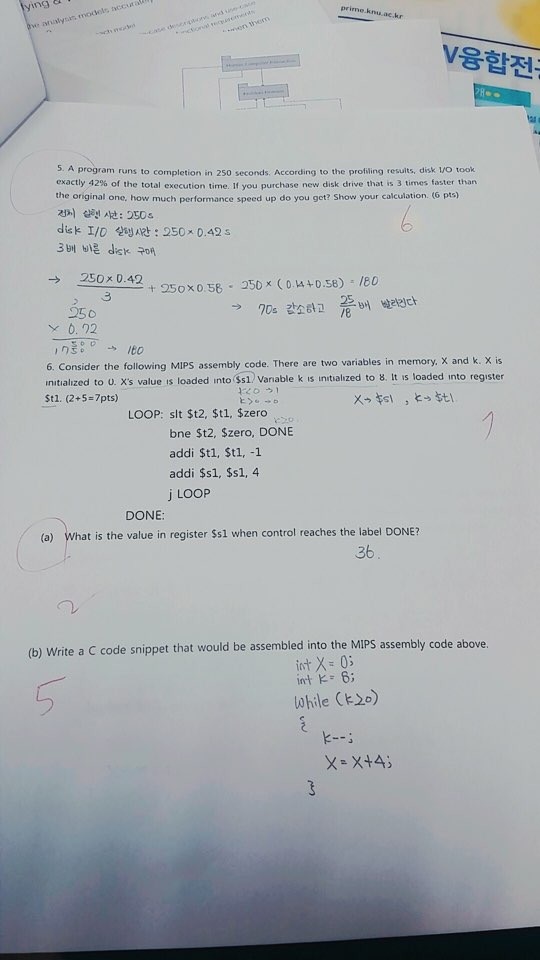 the analysis models accurately
case descriptions and use-case
functional requirements
when them
prime.knu.ac.kr
융합전
5. A program runs to completion in 250 seconds. According to the profiling results, disk I/O took
exactly 42% of the total execution time. If you purchase new disk drive that is 3 times faster than
the original one, how much performance speed up do you get? Show your calculation. (6 pts)
6
전체 실행시간: 250s
disk I/O 실행시간: 250×0.42s
3배 빠른 disk 구매
→ 250×0.42 / 3 + 250×0.58 = 250×(0.14+0.58) = 180
→ 70s 감소하고 25/18 배 빨라진다
250
× 0.72
500
1750 → 180
6. Consider the following MIPS assembly code. There are two variables in memory, X and k. X is
initialized to 0. X's value is loaded into $s1. Variable k is initialized to 8. It is loaded into register
$t1. (2+5=7pts)
k<0 → 1
k≥0 → 0
X→$s1, k→$t1.
7
LOOP: slt $t2, $t1, $zero
k≥0.
bne $t2, $zero, DONE
addi $t1, $t1, -1
addi $s1, $s1, 4
j LOOP
DONE:
(a) What is the value in register $s1 when control reaches the label DONE?
36.
2
(b) Write a C code snippet that would be assembled into the MIPS assembly code above.
5
int X = 0;
int k = 8;
while (k≥0)
{
k--;
X = X+4;
}